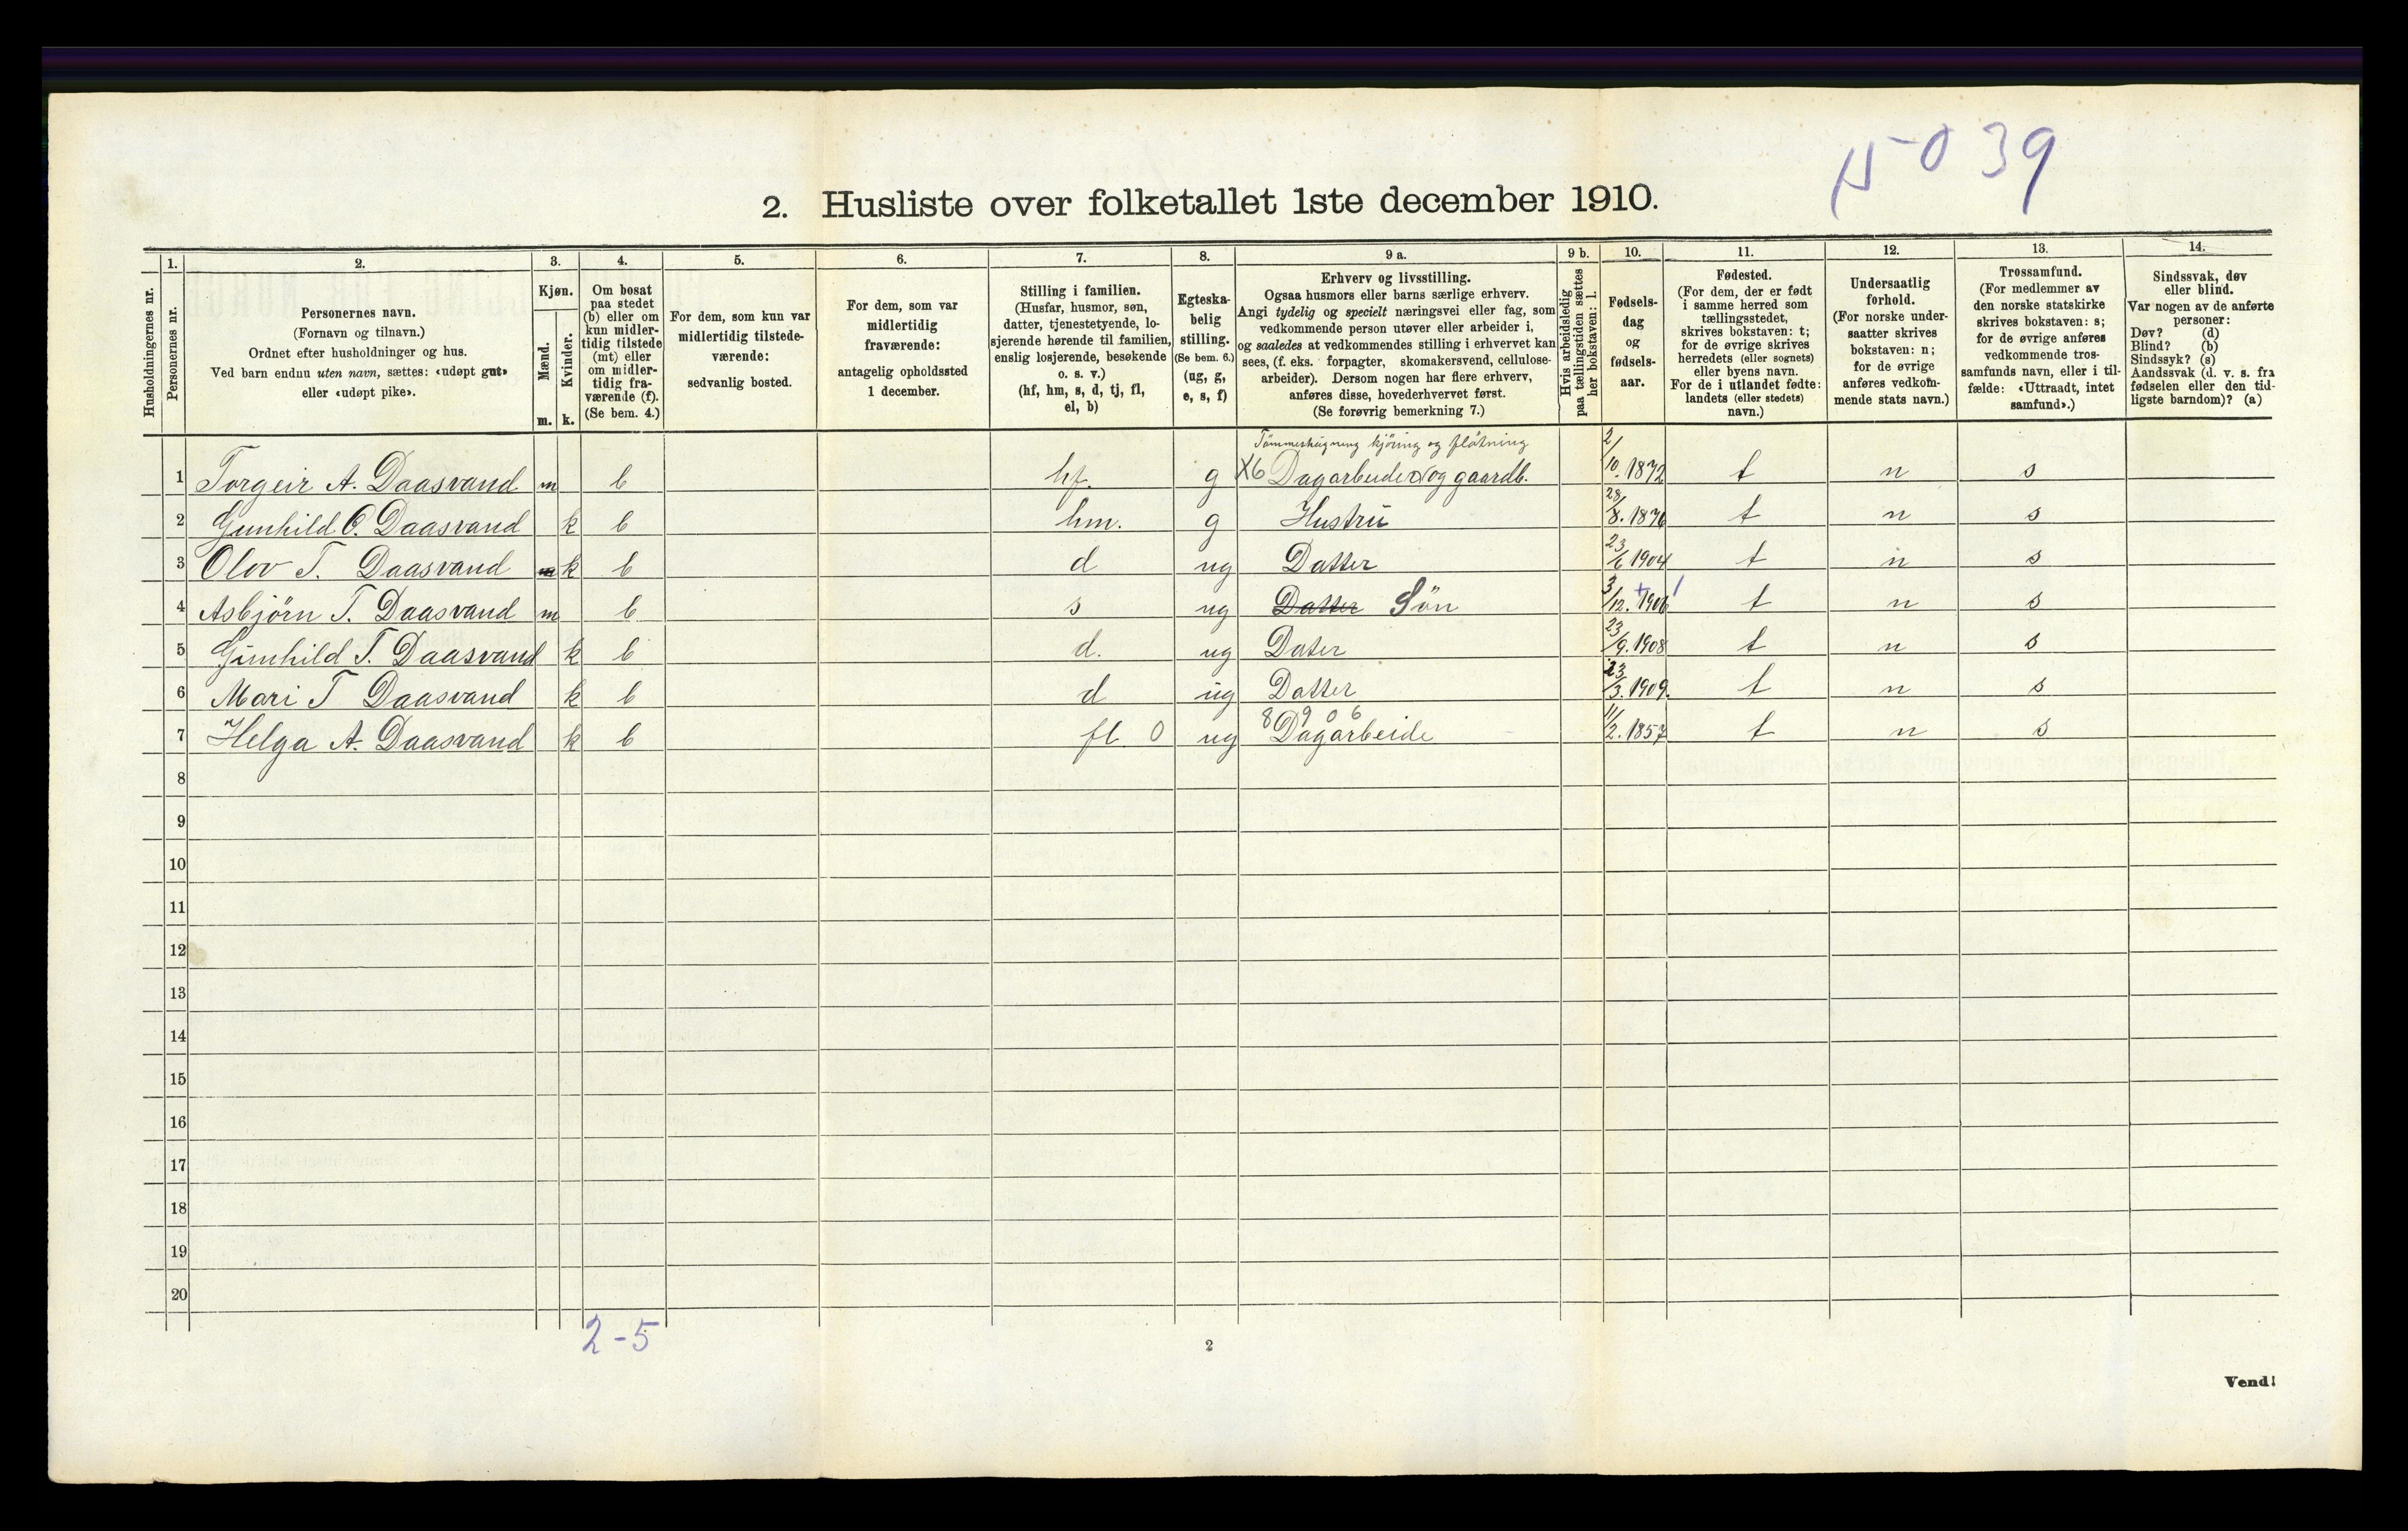 039
2. Husliste over folketallet 1ste december 1910.
Husholdningernes nr.
1. Personernes nr.
2. Personernes navn.
(Fornavn og tilnavn.)
Ordnet efter husholdninger og hus.
Ved barn endnu uten navn, sættes: «udøpt gut»
eller «udøpt pike».
3. Kjøn.
Mænd. m.
Kvinder. k.
4. Om bosat
paa stedet
(b) eller om
kun midler-
tidig tilstede
(mt) eller
om midler-
tidig fra-
værende (f).
(Se bem. 4.)
5. For dem, som kun var
midlertidig tilstede-
værende:
sedvanlig bosted.
6. For dem, som var
midlertidig
fraværende:
antagelig opholdssted
1 december.
7. Stilling i familien.
(Husfar, husmor, søn,
datter, tjenestetyende, lo-
sjerende hørende til familien,
enslig losjerende, besøkende
o. s. v.)
(hf, hm, s, d, tj, fl,
el, b)
8. Egteska-
belig
stilling.
(Se bem. 6.)
(ug, g,
e, s, f)
9 a. Erhverv og livsstilling.
Ogsaa husmors eller barns særlige erhverv.
Angi tydelig og specielt næringsvei eller fag, som
vedkommende person utøver eller arbeider i,
og saaledes at vedkommendes stilling i erhvervet kan
sees, (f. eks. forpagter, skomakersvend, cellulose-
arbeider). Dersom nogen har flere erhverv,
anføres disse, hovederhvervet først.
(Se forøvrig bemerkning 7.)
9 b. Hvis arbeidsledig
paa tællingstiden sættes
her bokstaven: l.
10. Fødsels-
dag
og
fødsels-
aar.
11. Fødested.
(For dem, der er født
i samme herred som
tællingsstedet,
skrives bokstaven: t;
for de øvrige skrives
herredets (eller sognets)
eller byens navn.
For de i utlandet fødte:
landets (eller stedets)
navn.)
12. Undersaatlig
forhold.
(For norske under-
saatter skrives
bokstaven: n;
for de øvrige
anføres vedkom-
mende stats navn.)
13. Trossamfund.
(For medlemmer av
den norske statskirke
skrives bokstaven: s;
for de øvrige anføres
vedkommende tros-
samfunds navn, eller i til-
fælde: «Uttraadt, intet
samfund».)
14. Sindssvak, døv
eller blind.
Var nogen av de anførte
personer:
Døv? (d)
Blind? (b)
Sindssyk? (s)
Aandssvak (d. v. s. fra
fødselen eller den tid-
ligste barndom)? (a)
Tömmerhugning kjöring og flötning
1 Torgeir A. Daasvand m b hf. g X6 Dagarbeider og gaardb. 2/10. 1872 t n s
2 Gunhild O. Daasvand k b hm. g Hustru 28/8. 1876 t n s
3 Olov T. Daasvand m k b d ug Datter 23/6 1904 t n s
4 Asbjörn T. Daasvand m b s ug Datter Sön 3/12. 1906 t n s
5 Gunhild T. Daasvand k b d. ug Dater 23/9. 1908 t n s
6 Mari T Daasvand k b d ug Datter 23/3. 1909. t n s
8 9 0 6
7 Helga A. Daasvand k b fl 0 ug Dagarbeide 11/2. 1857 t n s
8
9
10
11
12
13
14
15
16
17
18
19
20
2-5
2
Vend!